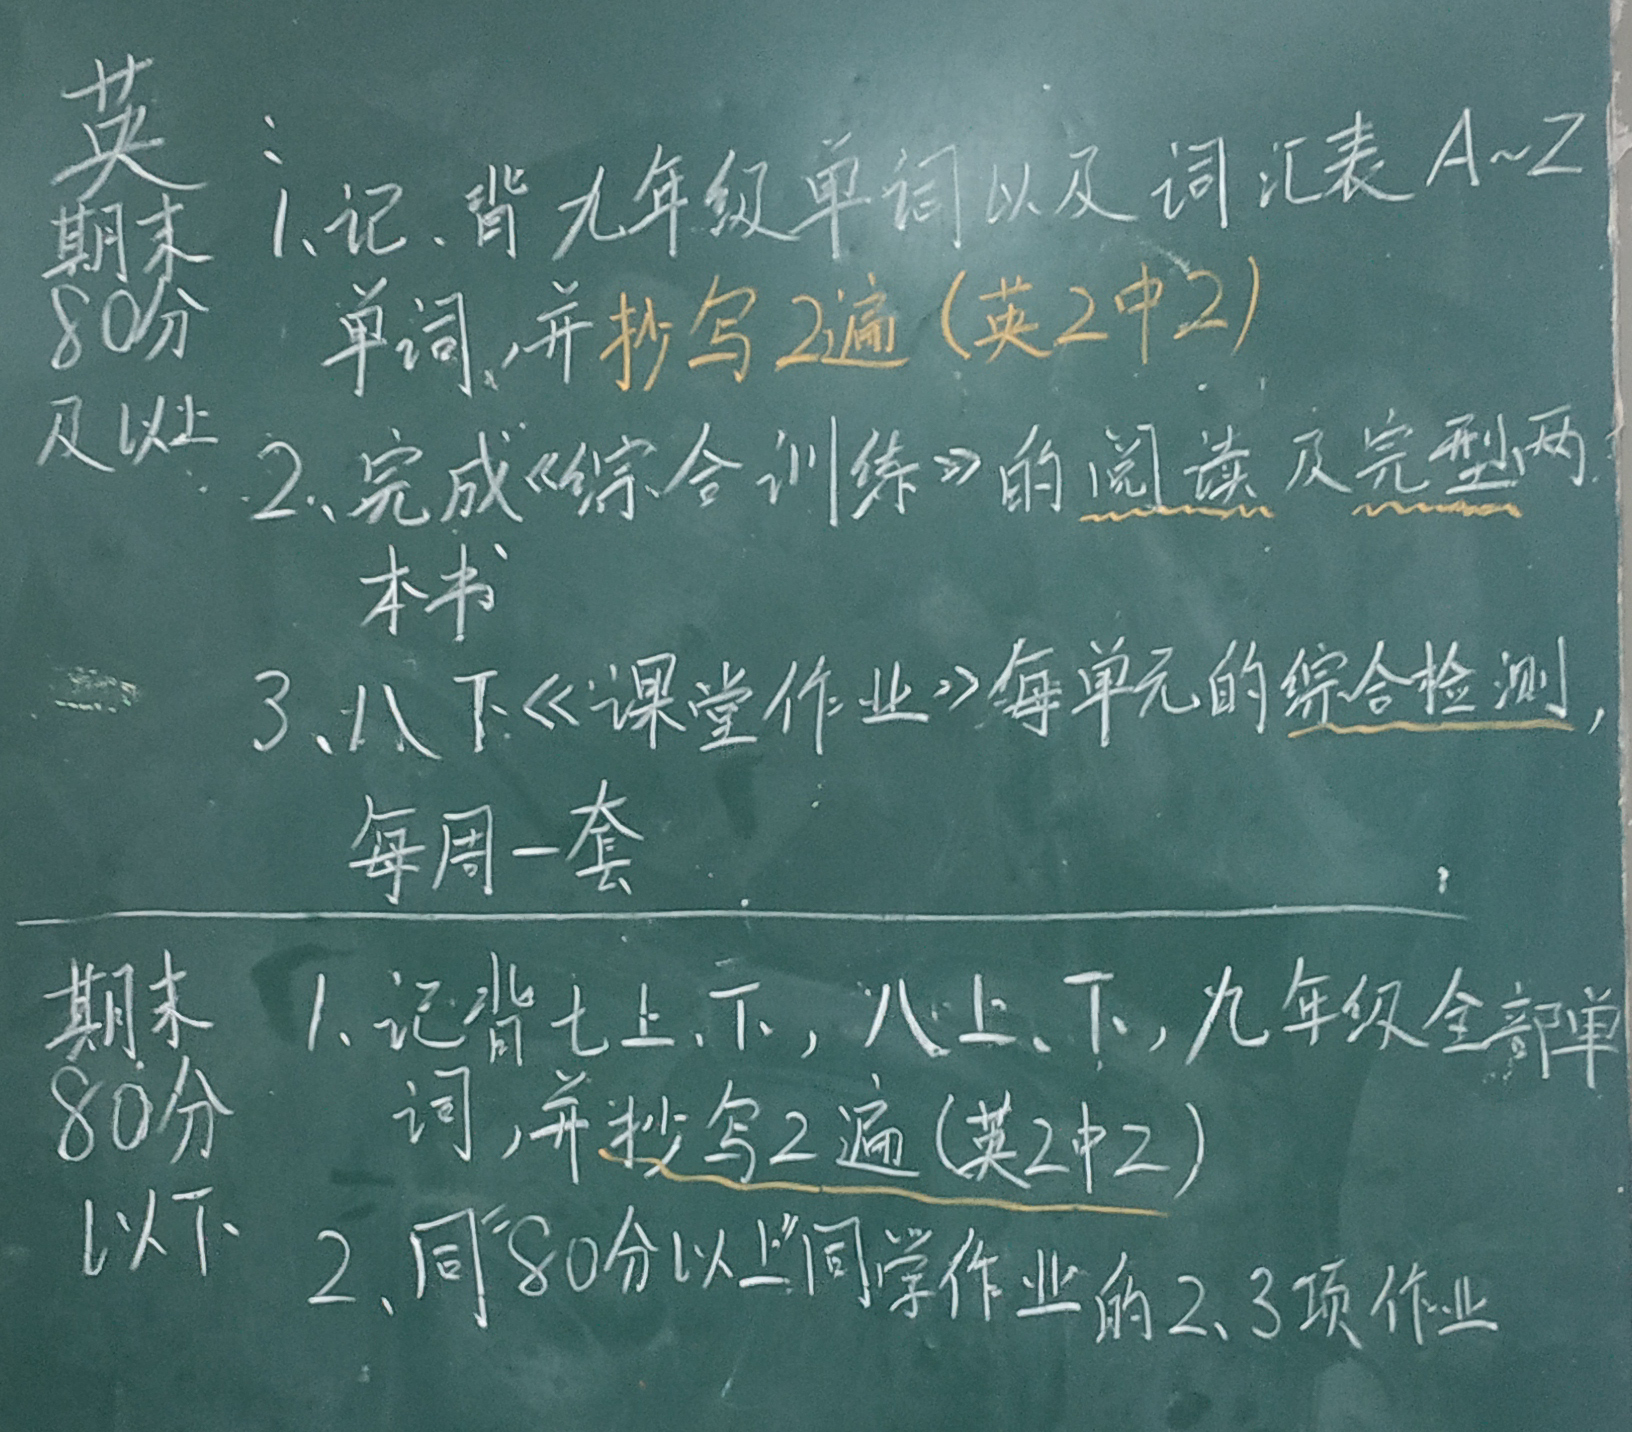 英:
期末
80分
及以上
1、记、背九年级单词以及词汇表A~Z
单词,并抄写2遍(英2中2)
2、完成《综合训练》的阅读及完型两
本书
3、八下《课堂作业》每单元的综合检测,
每周一套
期末
80分
以下
1、记背七上、下,八上、下,九年级全部单
词,并抄写2遍(英2中2)
2、同“80分以上”同学作业的2、3项作业